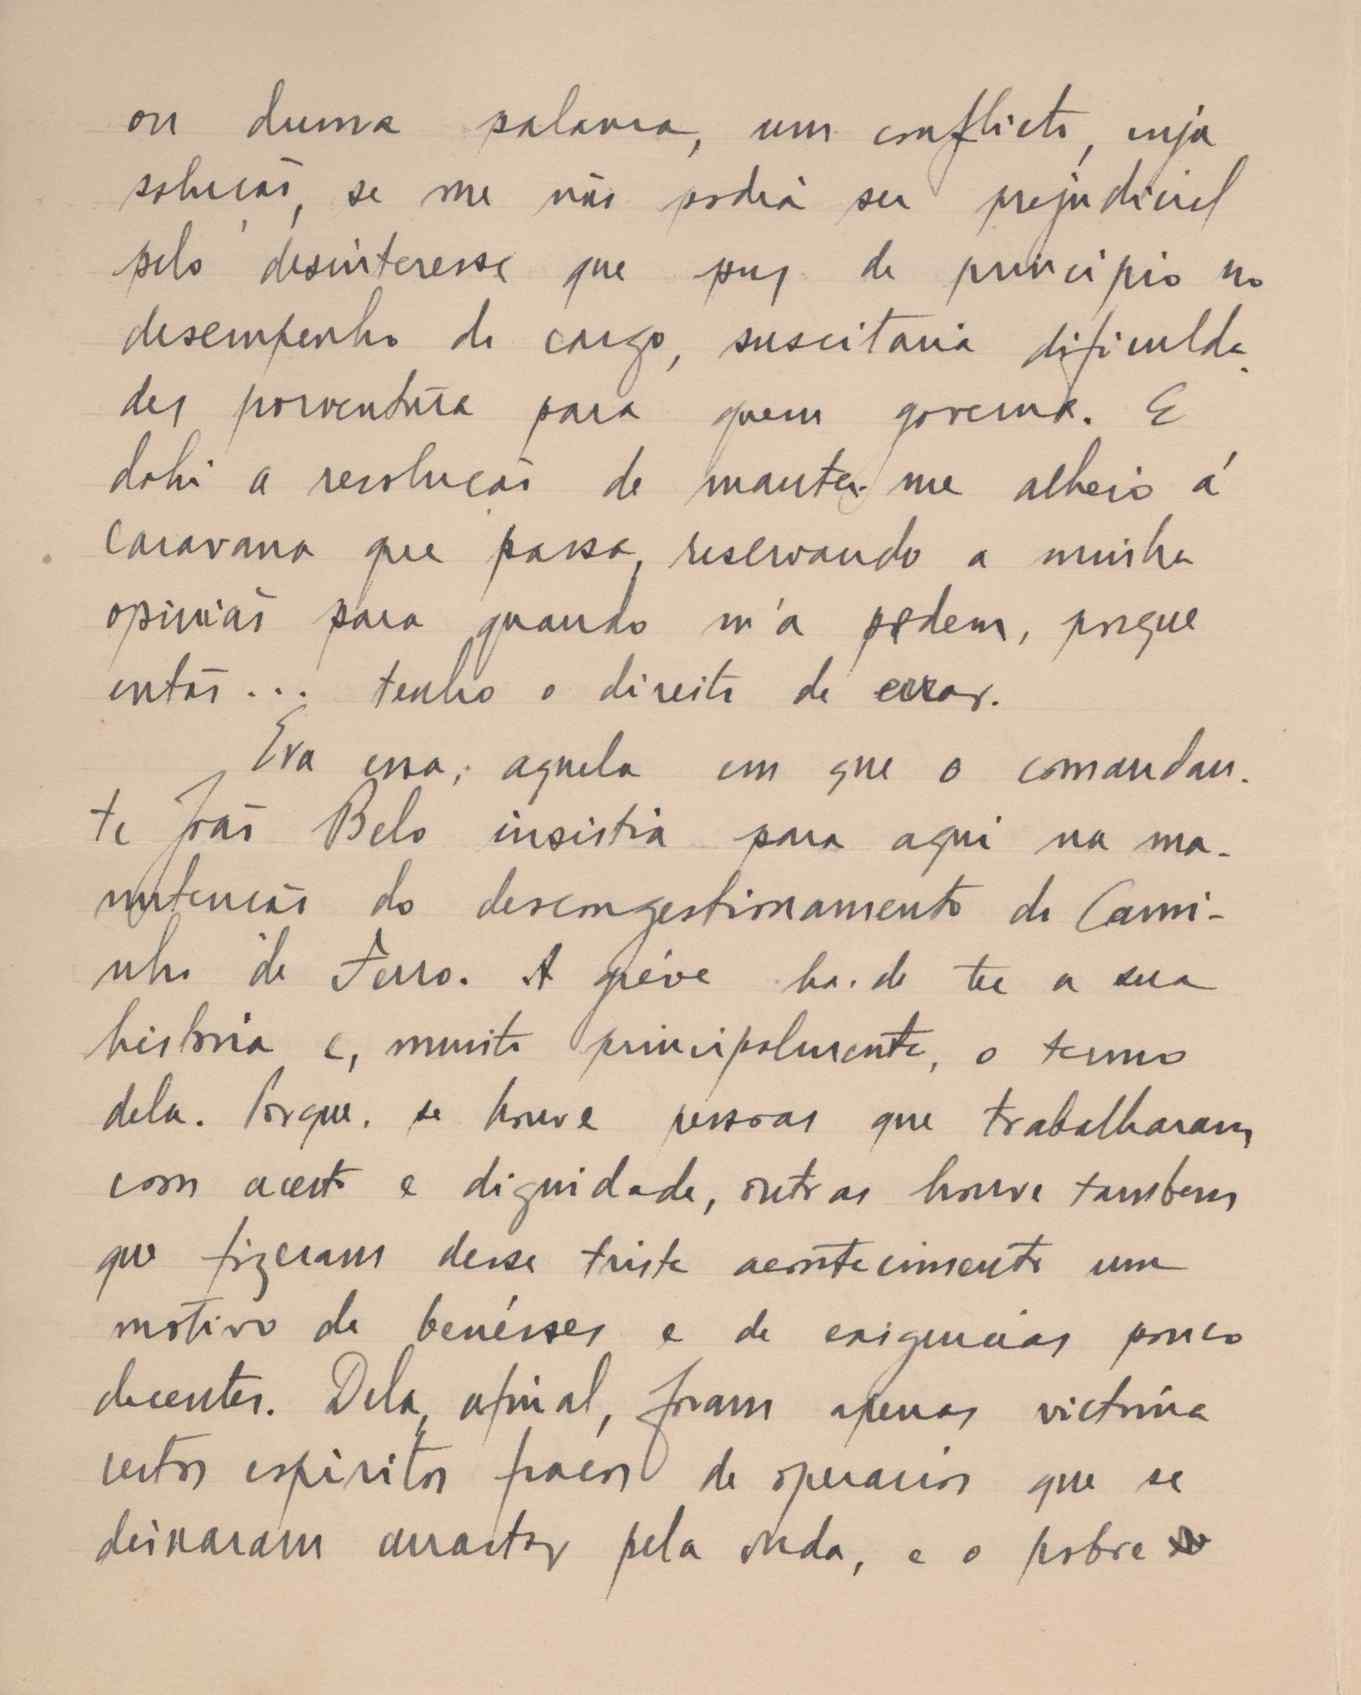 ou duma palavra, um conflicto, cuja
solução, se me não podia ser prejudicial
pelo desinteresse que puz de principio no
desempenho do cargo, suscitaria dificulda-
des porventura para quem governa. E
dahi a resolução de manter-me alheio á
caravana que passa, reservando a minha
opinião para quando m'a pedem, porque
então... tenho o direito de errar.
Era essa, aquela em que o comandan-
te João Belo insistia para aqui na ma-
nutenção do descongestionamento do Cami-
nho de Ferro. A gréve ha-de ter a sua
historia e, muito principalmente, o termo
dela. Porque, se houve pessoas que trabalharam
com acerto e dignidade, outras houve tambem
que fizeram desse triste acontecimento um
motivo de benésses e de exigencias pouco
decentes. Dela, afinal, foram apenas victima
certos espiritos fracos de operarios que se
deixaram arrastar pela onda, e o pobre